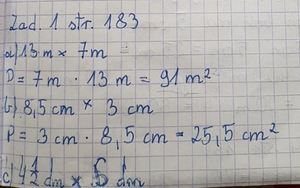 Zad. 1 str. 183
a) 13 m × 7m
P = 7m · 13 m = 91 m²
b) 8,5 cm × 3 cm
P = 3 cm · 8,5 cm = 25,5 cm²
c) 4½ dm × 6 dm